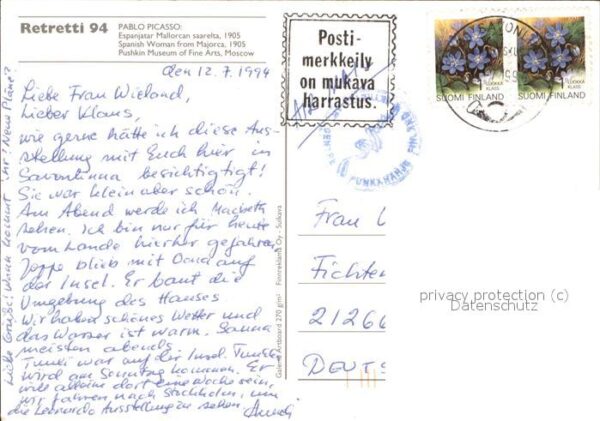 Retretti 94
PABLO PICASSO:
Espanjatar Mallorcan saarelta, 1905
Spanish Woman from Majorca, 1905
Pushkin Museum of Fine Arts, Moscow
Posti-
merkkeily
on mukava
harrastus.
SUOMI FINLAND
KLASS
SUOMI FINLAND
KLASS
PUNKAHARJU
den 12.7.1994
Liebe Frau Wieland,
Lieber Klaus,
wie gerne hätte ich diese Aus-
stellung mit Euch hier in
Savonlinna besichtigt!
Sie war klein aber schön.
Am Abend werde ich Macbeth
sehen. Ich bin nur für heute
vom Lande hierher gefahren
Joppe blieb mit Oona auf
der Insel. Er baut die
Umgebung des Hauses.
Wir haben schönes Wetter und
das Wasser ist warm. Sauna
meistens abends.
war auf der Insel.
wird am Sonntag kommen. Er
will alleine dort eine Woche sein,
wir fahren nach Stockholm, um
die Leonardo Ausstellung zu sehen
Liebe Grüße! Wann kommt Ihr? Neue Pläne?
Galerie Artboard 270 g/m² Fonreklaami Oy - Sulkava
Frau
Fichten
21266
DEUTS
privacy protection (c)
Datenschutz